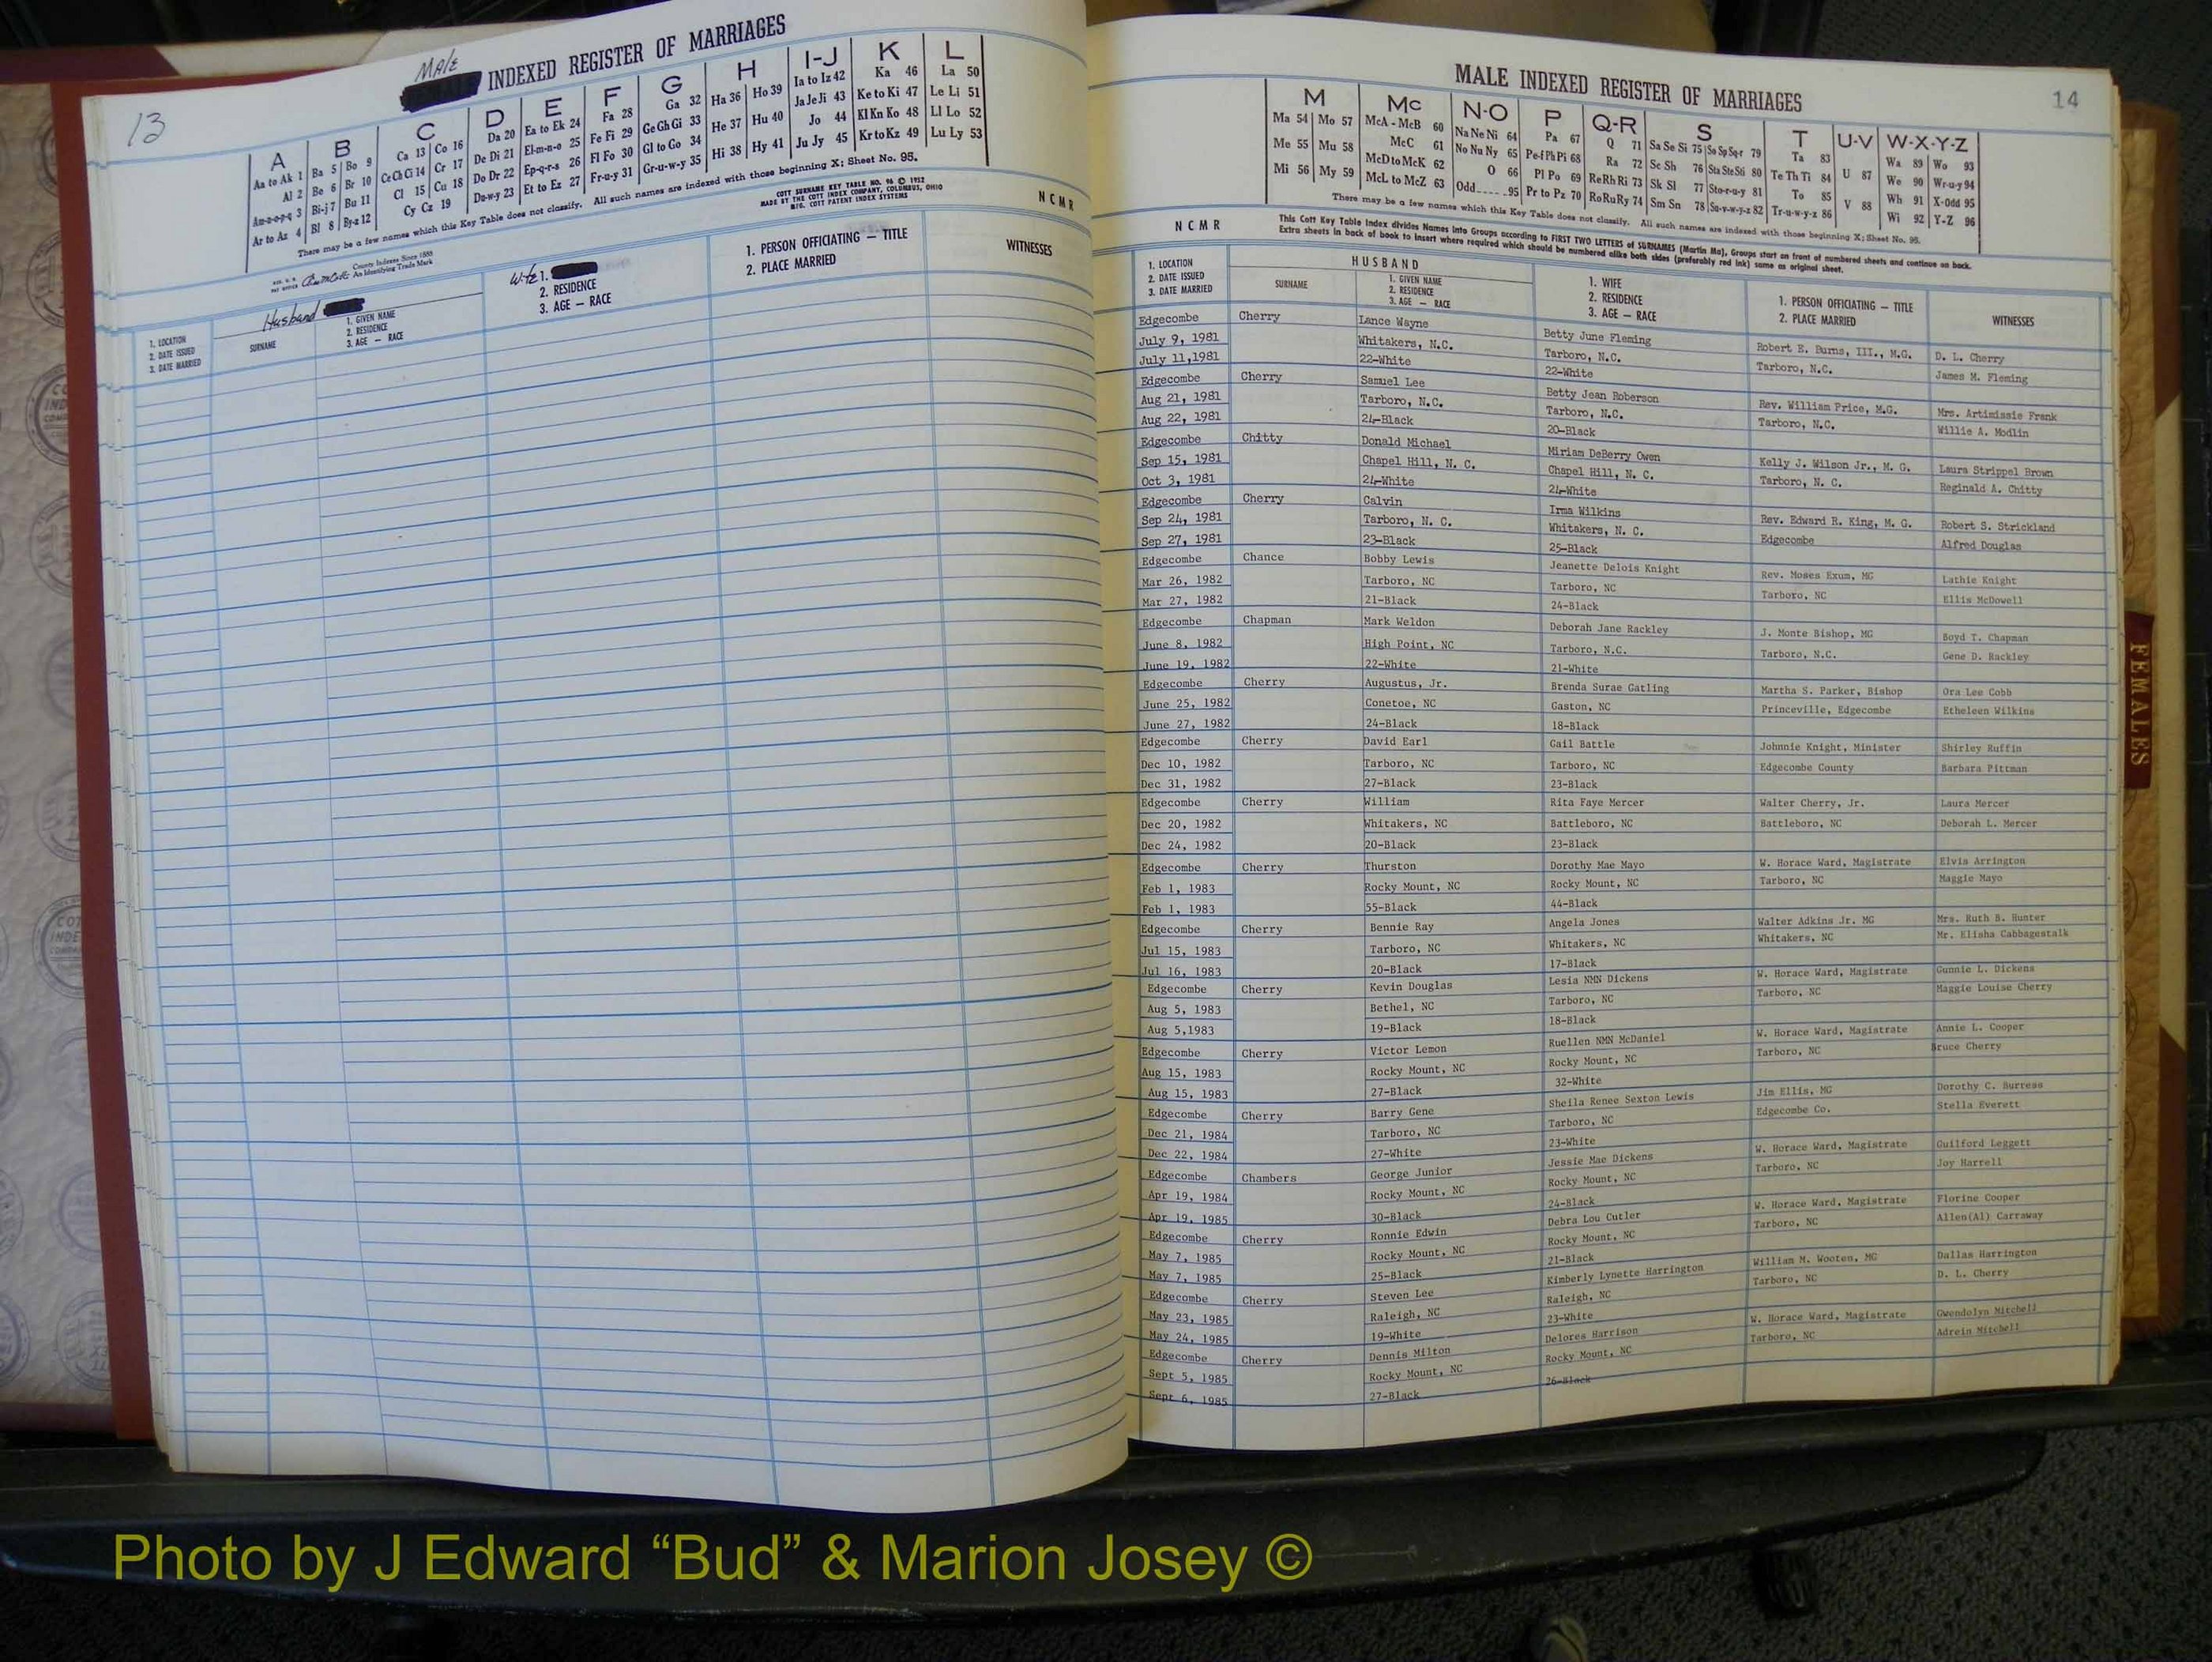 13
Male
INDEXED REGISTER OF MARRIAGES
A
Aa to Ak 1
Al 2
Am-n-o-p-q 3
Ar to Az 4
B
Ba 5 Bo 9
Be 6 Br 10
Bi-j 7 Bu 11
Bl 8 By-z 12
C
Ca 13 Co 16
Ce Ch Ci 14 Cr 17
Cl 15 Cu 18
Cy Cz 19
D
Da 20
De Di 21
Do Dr 22
Du-w-y 23
E
Ea to Ek 24
El-m-n-o 25
Ep-q-r-s 26
Et to Ez 27
F
Fa 28
Fe Fi 29
Fl Fo 30
Fr-u-y 31
G
Ga 32
Ge Gh Gi 33
Gl to Go 34
Gr-u-w-y 35
H
Ha 36 Ho 39
He 37 Hu 40
Hi 38 Hy 41
I-J
Ia to Iz 42
Ja Je Ji 43
Jo 44
Ju Jy 45
K
Ka 46
Ke to Ki 47
Kl Kn Ko 48
Kr to Kz 49
L
La 50
Le Li 51
Ll Lo 52
Lu Ly 53
There may be a few names which this Key Table does not classify. All such names are indexed with those beginning X; Sheet No. 95.
County Indexes Since 1888
An Identifying Trade Mark
COTT SURNAME KEY TABLE NO. 96 © 1952
MADE BY THE COTT INDEX COMPANY, COLUMBUS, OHIO
MFG. COTT PATENT INDEX SYSTEMS
N C M R
1. LOCATION
2. DATE ISSUED
3. DATE MARRIED
Husband
SURNAME
1. GIVEN NAME
2. RESIDENCE
3. AGE — RACE
Wife 1.
2. RESIDENCE
3. AGE — RACE
1. PERSON OFFICIATING — TITLE
2. PLACE MARRIED
WITNESSES
MALE INDEXED REGISTER OF MARRIAGES
14
M
Ma 54 Mo 57
Me 55 Mu 58
Mi 56 My 59
Mc
McA - McB 60
McC 61
McD to McK 62
McL to McZ 63
N-O
Na Ne Ni 64
No Nu Ny 65
O 66
Odd 95
P
Pa 67
Pe-f Ph Pi 68
Pl Po 69
Pr to Pz 70
Q-R
Q 71
Ra 72
Re Rh Ri 73
Ro Ru Ry 74
S
Sa Se Si 75 So Sp Sq-r 79
Sc Sh 76 Sta Ste Sti 80
Sk Sl 77 Sto-r-u-y 81
Sm Sn 78 Su-v-w-y-z 82
T
Ta 83
Te Th Ti 84
To 85
Tr-u-w-y-z 86
U-V
U 87
V 88
W-X-Y-Z
Wa 89 Wo 93
We 90 Wr-u-y 94
Wh 91 X-Odd 95
Wi 92 Y-Z 96
There may be a few names which this Key Table does not classify. All such names are indexed with those beginning X; Sheet No. 95.
N C M R
This Cott Key Table Index divides Names into Groups according to FIRST TWO LETTERS of SURNAMES (Martin Ma), Groups start on front of numbered sheets and continue on back.
Extra sheets in back of book to insert where required which should be numbered alike both sides (preferably red ink) same as original sheet.
1. LOCATION
2. DATE ISSUED
3. DATE MARRIED
HUSBAND
SURNAME
1. GIVEN NAME
2. RESIDENCE
3. AGE — RACE
1. WIFE
2. RESIDENCE
3. AGE — RACE
1. PERSON OFFICIATING — TITLE
2. PLACE MARRIED
WITNESSES
Edgecombe Cherry Lance Wayne Betty June Fleming Robert E. Burns, III., M.G. D. L. Cherry
July 9, 1981 Whitakers, N.C. Tarboro, N.C. Tarboro, N.C. James M. Fleming
July 11,1981 22-White 22-White
Edgecombe Cherry Samuel Lee Betty Jean Roberson Rev. William Price, M.G. Mrs. Artimissie Frenk
Aug 21, 1981 Tarboro, N.C. Tarboro, N.C. Tarboro, N.C. Willie A. Modlin
Aug 22, 1981 24-Black 20-Black
Edgecombe Chitty Donald Michael Miriam DeBerry Owen Kelly J. Wilson Jr., M. G. Laura Strippel Brown
Sep 15, 1981 Chapel Hill, N. C. Chapel Hill, N. C. Tarboro, N. C. Reginald A. Chitty
Oct 3, 1981 24-White 24-White
Edgecombe Cherry Calvin Irma Wilkins Rev. Edward R. King, M. G. Robert S. Strickland
Sep 24, 1981 Tarboro, N. C. Whitakers, N. C. Edgecombe Alfred Douglas
Sep 27, 1981 23-Black 25-Black
Edgecombe Chance Bobby Lewis Jeanette Delois Knight Rev. Moses Exum, MG Lathie Knight
Mar 26, 1982 Tarboro, NC Tarboro, NC Tarboro, NC Ellis McDowell
Mar 27, 1982 21-Black 24-Black
Edgecombe Chapman Mark Weldon Deborah Jane Rackley J. Monte Bishop, MG Boyd T. Chapman
June 8, 1982 High Point, NC Tarboro, N.C. Tarboro, N.C. Gene D. Rackley
June 19, 1982 22-White 21-White
Edgecombe Cherry Augustus, Jr. Brenda Surae Gatling Martha S. Parker, Bishop Ora Lee Cobb
June 25, 1982 Conetoe, NC Gaston, NC Princeville, Edgecombe Etheleen Wilkins
June 27, 1982 24-Black 18-Black
Edgecombe Cherry David Earl Gail Battle Johnnie Knight, Minister Shirley Ruffin
Dec 10, 1982 Tarboro, NC Tarboro, NC Edgecombe County Barbara Pittman
Dec 31, 1982 27-Black 23-Black
Edgecombe Cherry William Rita Faye Mercer Walter Cherry, Jr. Laura Mercer
Dec 20, 1982 Whitakers, NC Battleboro, NC Battleboro, NC Deborah L. Mercer
Dec 24, 1982 20-Black 23-Black
Edgecombe Cherry Thurston Dorothy Mae Mayo W. Horace Ward, Magistrate Elvis Arrington
Feb 1, 1983 Rocky Mount, NC Rocky Mount, NC Tarboro, NC Maggie Mayo
Feb 1, 1983 55-Black 44-Black
Edgecombe Cherry Bennie Ray Angela Jones Walter Adkins Jr. MG Mrs. Ruth B. Hunter
Jul 15, 1983 Tarboro, NC Whitakers, NC Whitakers, NC Mr. Elisha Cabbagestalk
Jul 16, 1983 20-Black 17-Black
Edgecombe Cherry Kevin Douglas Lesia NMN Dickens W. Horace Ward, Magistrate Gunnie L. Dickens
Aug 5, 1983 Bethel, NC Tarboro, NC Tarboro, NC Maggie Louise Cherry
Aug 5,1983 19-Black 18-Black
Edgecombe Cherry Victor Lemon Ruellen NMN McDaniel W. Horace Ward, Magistrate Annie L. Cooper
Aug 15, 1983 Rocky Mount, NC Rocky Mount, NC Tarboro, NC Bruce Cherry
Aug 15, 1983 27-Black 32-White
Edgecombe Cherry Barry Gene Sheila Renee Sexton Lewis Jim Ellis, MG Dorothy C. Burress
Dec 21, 1984 Tarboro, NC Tarboro, NC Edgecombe Co. Stella Everett
Dec 22, 1984 27-White 23-White
Edgecombe Chambers George Junior Jessie Mae Dickens W. Horace Ward, Magistrate Guilford Leggett
Apr 19, 1984 Rocky Mount, NC Rocky Mount, NC Tarboro, NC Joy Harrell
Apr 19, 1985 30-Black 24-Black
Edgecombe Cherry Ronnie Edwin Debra Lou Cutler W. Horace Ward, Magistrate Florine Cooper
May 7, 1985 Rocky Mount, NC Rocky Mount, NC Tarboro, NC Allen(Al) Carraway
May 7, 1985 25-Black 21-Black
Edgecombe Cherry Steven Lee Kimberly Lynette Harrington William M. Wooten, MG Dallas Harrington
May 23, 1985 Raleigh, NC Raleigh, NC Tarboro, NC D. L. Cherry
May 24, 1985 19-White 23-White
Edgecombe Cherry Dennis Milton Delores Harrison W. Horace Ward, Magistrate Gwendolyn Mitchell
Sept 5, 1985 Rocky Mount, NC Rocky Mount, NC Tarboro, NC Adrein Mitchell
Sept 6, 1985 27-Black 26-Black
FEMALES
Photo by J Edward “Bud” & Marion Josey ©